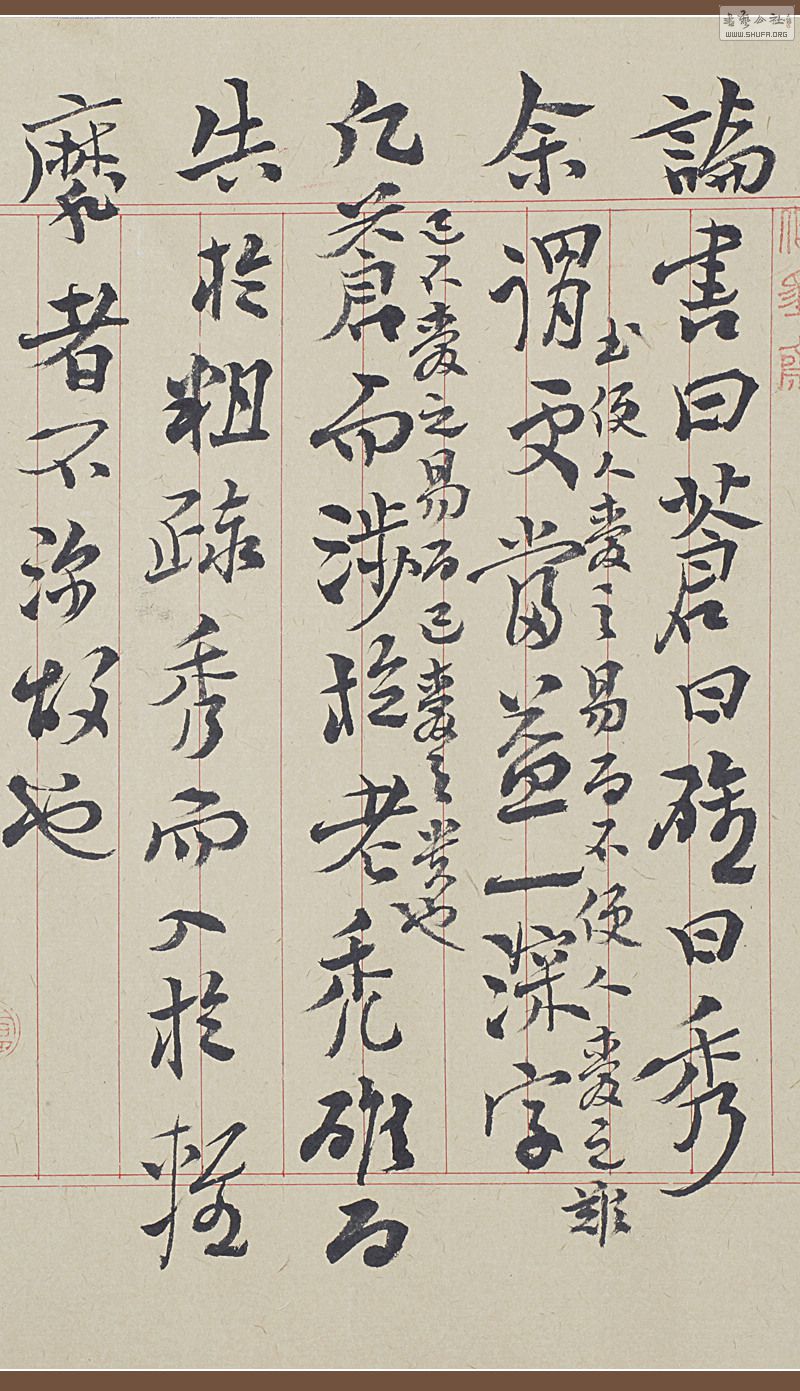 論書曰蒼曰雄曰秀
書使人愛之易而不使人愛之難
余謂更當益一深字
己不愛之易而己愛之也
凡蒼而涉於老禿雄而
失於粗疏秀而入於輕
靡者不深故也
書藝公社
WWW.SHUFA.ORG